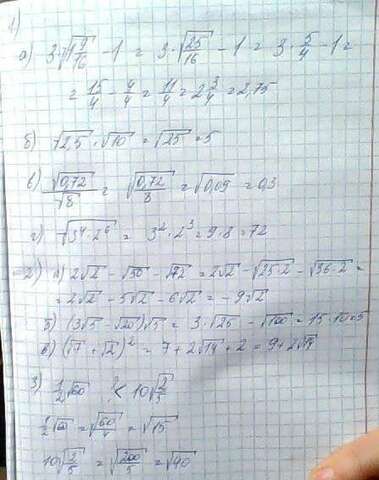 1)
а) 3·√(1 9/16) - 1 = 3·√(25/16) - 1 = 3·5/4 - 1 =
= 15/4 - 4/4 = 11/4 = 2 3/4 = 2,75
б) √2,5 · √10 = √25 = 5
в) √0,72/√8 = √(0,72/8) = √0,09 = 0,3
г) √(3⁴·2⁶) = 3²·2³ = 9·8 = 72
2) а) 2√2 - √50 - √72 = 2√2 - √(25·2) - √(36·2) =
= 2√2 - 5√2 - 6√2 = -9√2
б) (3√5 - √20)√5 = 3·√25 - √100 = 15-10=5
в) (√7 + √2)² = 7 + 2√14 + 2 = 9 + 2√14
3) 1/2√60 < 10√(2/5)
1/2√60 = √(60/4) = √15
10√(2/5) = √(200/5) = √40